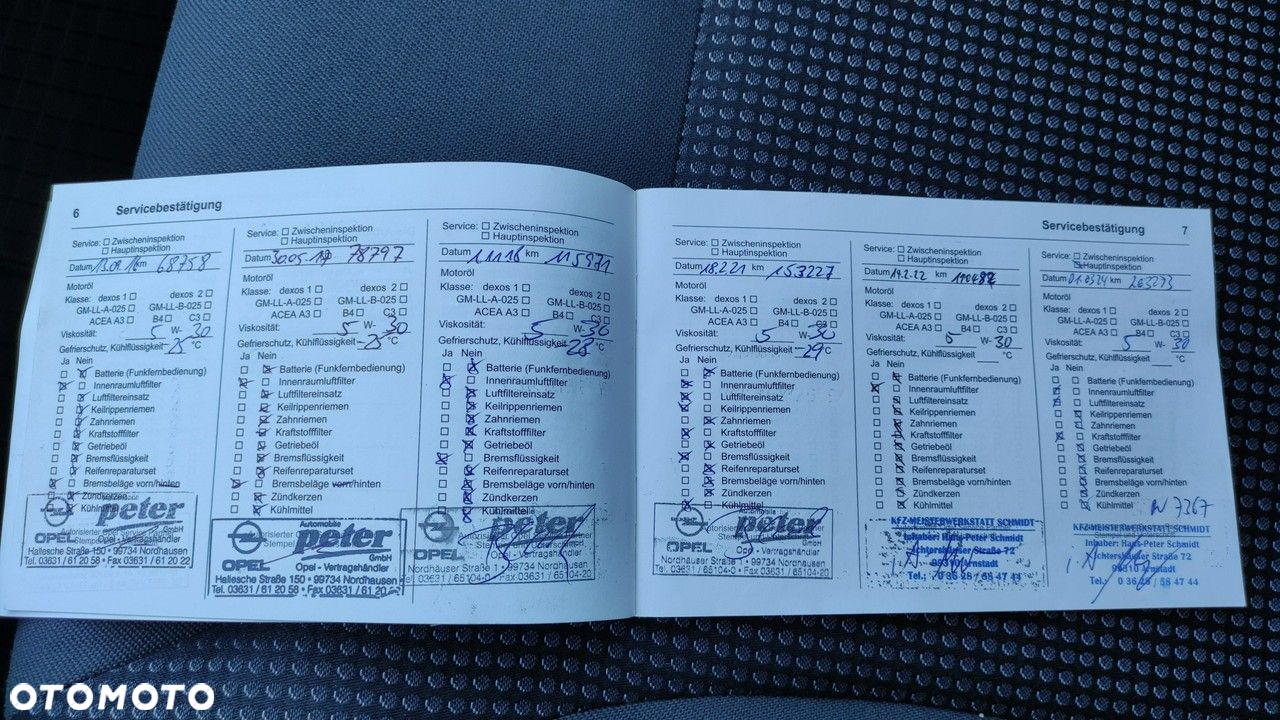 6 Servicebestätigung
Service: Zwischeninspektion
Hauptinspektion
Datum 13.09.16 km 68758
Motoröl
Klasse: dexos 1 dexos 2
GM-LL-A-025 GM-LL-B-025
ACEA A3 B4 C3
Viskosität: 5 W- 30
Gefrierschutz, Kühlflüssigkeit -25 °C
Ja Nein
Batterie (Funkfernbedienung)
Innenraumluftfilter
Luftfiltereinsatz
Keilrippenriemen
Zahnriemen
Kraftstofffilter
Getriebeöl
Bremsflüssigkeit
Reifenreparaturset
Bremsbeläge vorn/hinten
Zündkerzen
Kühlmittel
peter
GmbH
OPEL Opel - Vertragshändler
Hallesche Straße 150 • 99734 Nordhausen
Tel. 03631 / 61 20 58 • Fax 03631 / 61 20 22
Service: Zwischeninspektion
Hauptinspektion
Datum 30.05.17 78797
Motoröl
Klasse: dexos 1 dexos 2
GM-LL-A-025 GM-LL-B-025
ACEA A3 B4 C3
Viskosität: 5 W- 30
Gefrierschutz, Kühlflüssigkeit -25 °C
Ja Nein
Batterie (Funkfernbedienung)
Innenraumluftfilter
Luftfiltereinsatz
Keilrippenriemen
Zahnriemen
Kraftstofffilter
Getriebeöl
Bremsflüssigkeit
Reifenreparaturset
Bremsbeläge vorn/hinten
Zündkerzen
Kühlmittel
Automobile
peter
GmbH
OPEL Opel - Vertragshändler
Hallesche Straße 150 • 99734 Nordhausen
Tel. 03631 / 61 20 58 • Fax 03631 / 61 20
Service: Zwischeninspektion
Hauptinspektion
Datum km 115971
Motoröl
Klasse: dexos 1 dexos 2
GM-LL-A-025 GM-LL-B-025
ACEA A3 B4 C3
Viskosität: 5 W- 30
Gefrierschutz, Kühlflüssigkeit -28 °C
Ja Nein
Batterie (Funkfernbedienung)
Innenraumluftfilter
Luftfiltereinsatz
Keilrippenriemen
Zahnriemen
Kraftstofffilter
Getriebeöl
Bremsflüssigkeit
Reifenreparaturset
Bremsbeläge vorn/hinten
Zündkerzen
Kühlmittel
peter
OPEL Opel - Vertragshändler
Nordhäuser Straße 1 • 99734 Nordhausen
Tel. 03631 / 65104-0 • Fax 03631 / 65104-20
Servicebestätigung 7
Service: Zwischeninspektion
Hauptinspektion
Datum 18.2.21 km 153227
Motoröl
Klasse: dexos 1 dexos 2
GM-LL-A-025 GM-LL-B-025
ACEA A3 B4 C3
Viskosität: 5 W- 30
Gefrierschutz, Kühlflüssigkeit -29 °C
Ja Nein
Batterie (Funkfernbedienung)
Innenraumluftfilter
Luftfiltereinsatz
Keilrippenriemen
Zahnriemen
Kraftstofffilter
Getriebeöl
Bremsflüssigkeit
Reifenreparaturset
Bremsbeläge vorn/hinten
Zündkerzen
Kühlmittel
peter
OPEL Opel - Vertragshändler
Nordhäuser Straße 1 • 99734 Nordhausen
Tel. 03631 / 65104-0 • Fax 03631 / 65104-20
Service: Zwischeninspektion
Hauptinspektion
Datum 14.2.22 km
Motoröl
Klasse: dexos 1 dexos 2
GM-LL-A-025 GM-LL-B-025
ACEA A3 B4 C3
Viskosität: 5 W- 30
Gefrierschutz, Kühlflüssigkeit °C
Ja Nein
Batterie (Funkfernbedienung)
Innenraumluftfilter
Luftfiltereinsatz
Keilrippenriemen
Zahnriemen
Kraftstofffilter
Getriebeöl
Bremsflüssigkeit
Reifenreparaturset
Bremsbeläge vorn/hinten
Zündkerzen
Kühlmittel
KFZ-MEISTERWERKSTATT SCHMIDT
Inhaber: Hans-Peter Schmidt
Ichtershäuser Straße 72
99310 Arnstadt
Tel.: 0 36 28 / 58 47 44
Service: Zwischeninspektion
Hauptinspektion
Datum 01.0324 km 263293
Motoröl
Klasse: dexos 1 dexos 2
GM-LL-A-025 GM-LL-B-025
ACEA A3 B4 C3
Viskosität: 5 W- 30
Gefrierschutz, Kühlflüssigkeit °C
Ja Nein
Batterie (Funkfernbedienung)
Innenraumluftfilter
Luftfiltereinsatz
Keilrippenriemen
Zahnriemen
Kraftstofffilter
Getriebeöl
Bremsflüssigkeit
Reifenreparaturset
Bremsbeläge vorn/hinten
Zündkerzen
Kühlmittel
7367
KFZ-MEISTERWERKSTATT SCHMIDT
Inhaber: Hans-Peter Schmidt
Ichtershäuser Straße 72
99310 Arnstadt
Tel.: 0 36 28 / 58 47 44
OTOMOTO